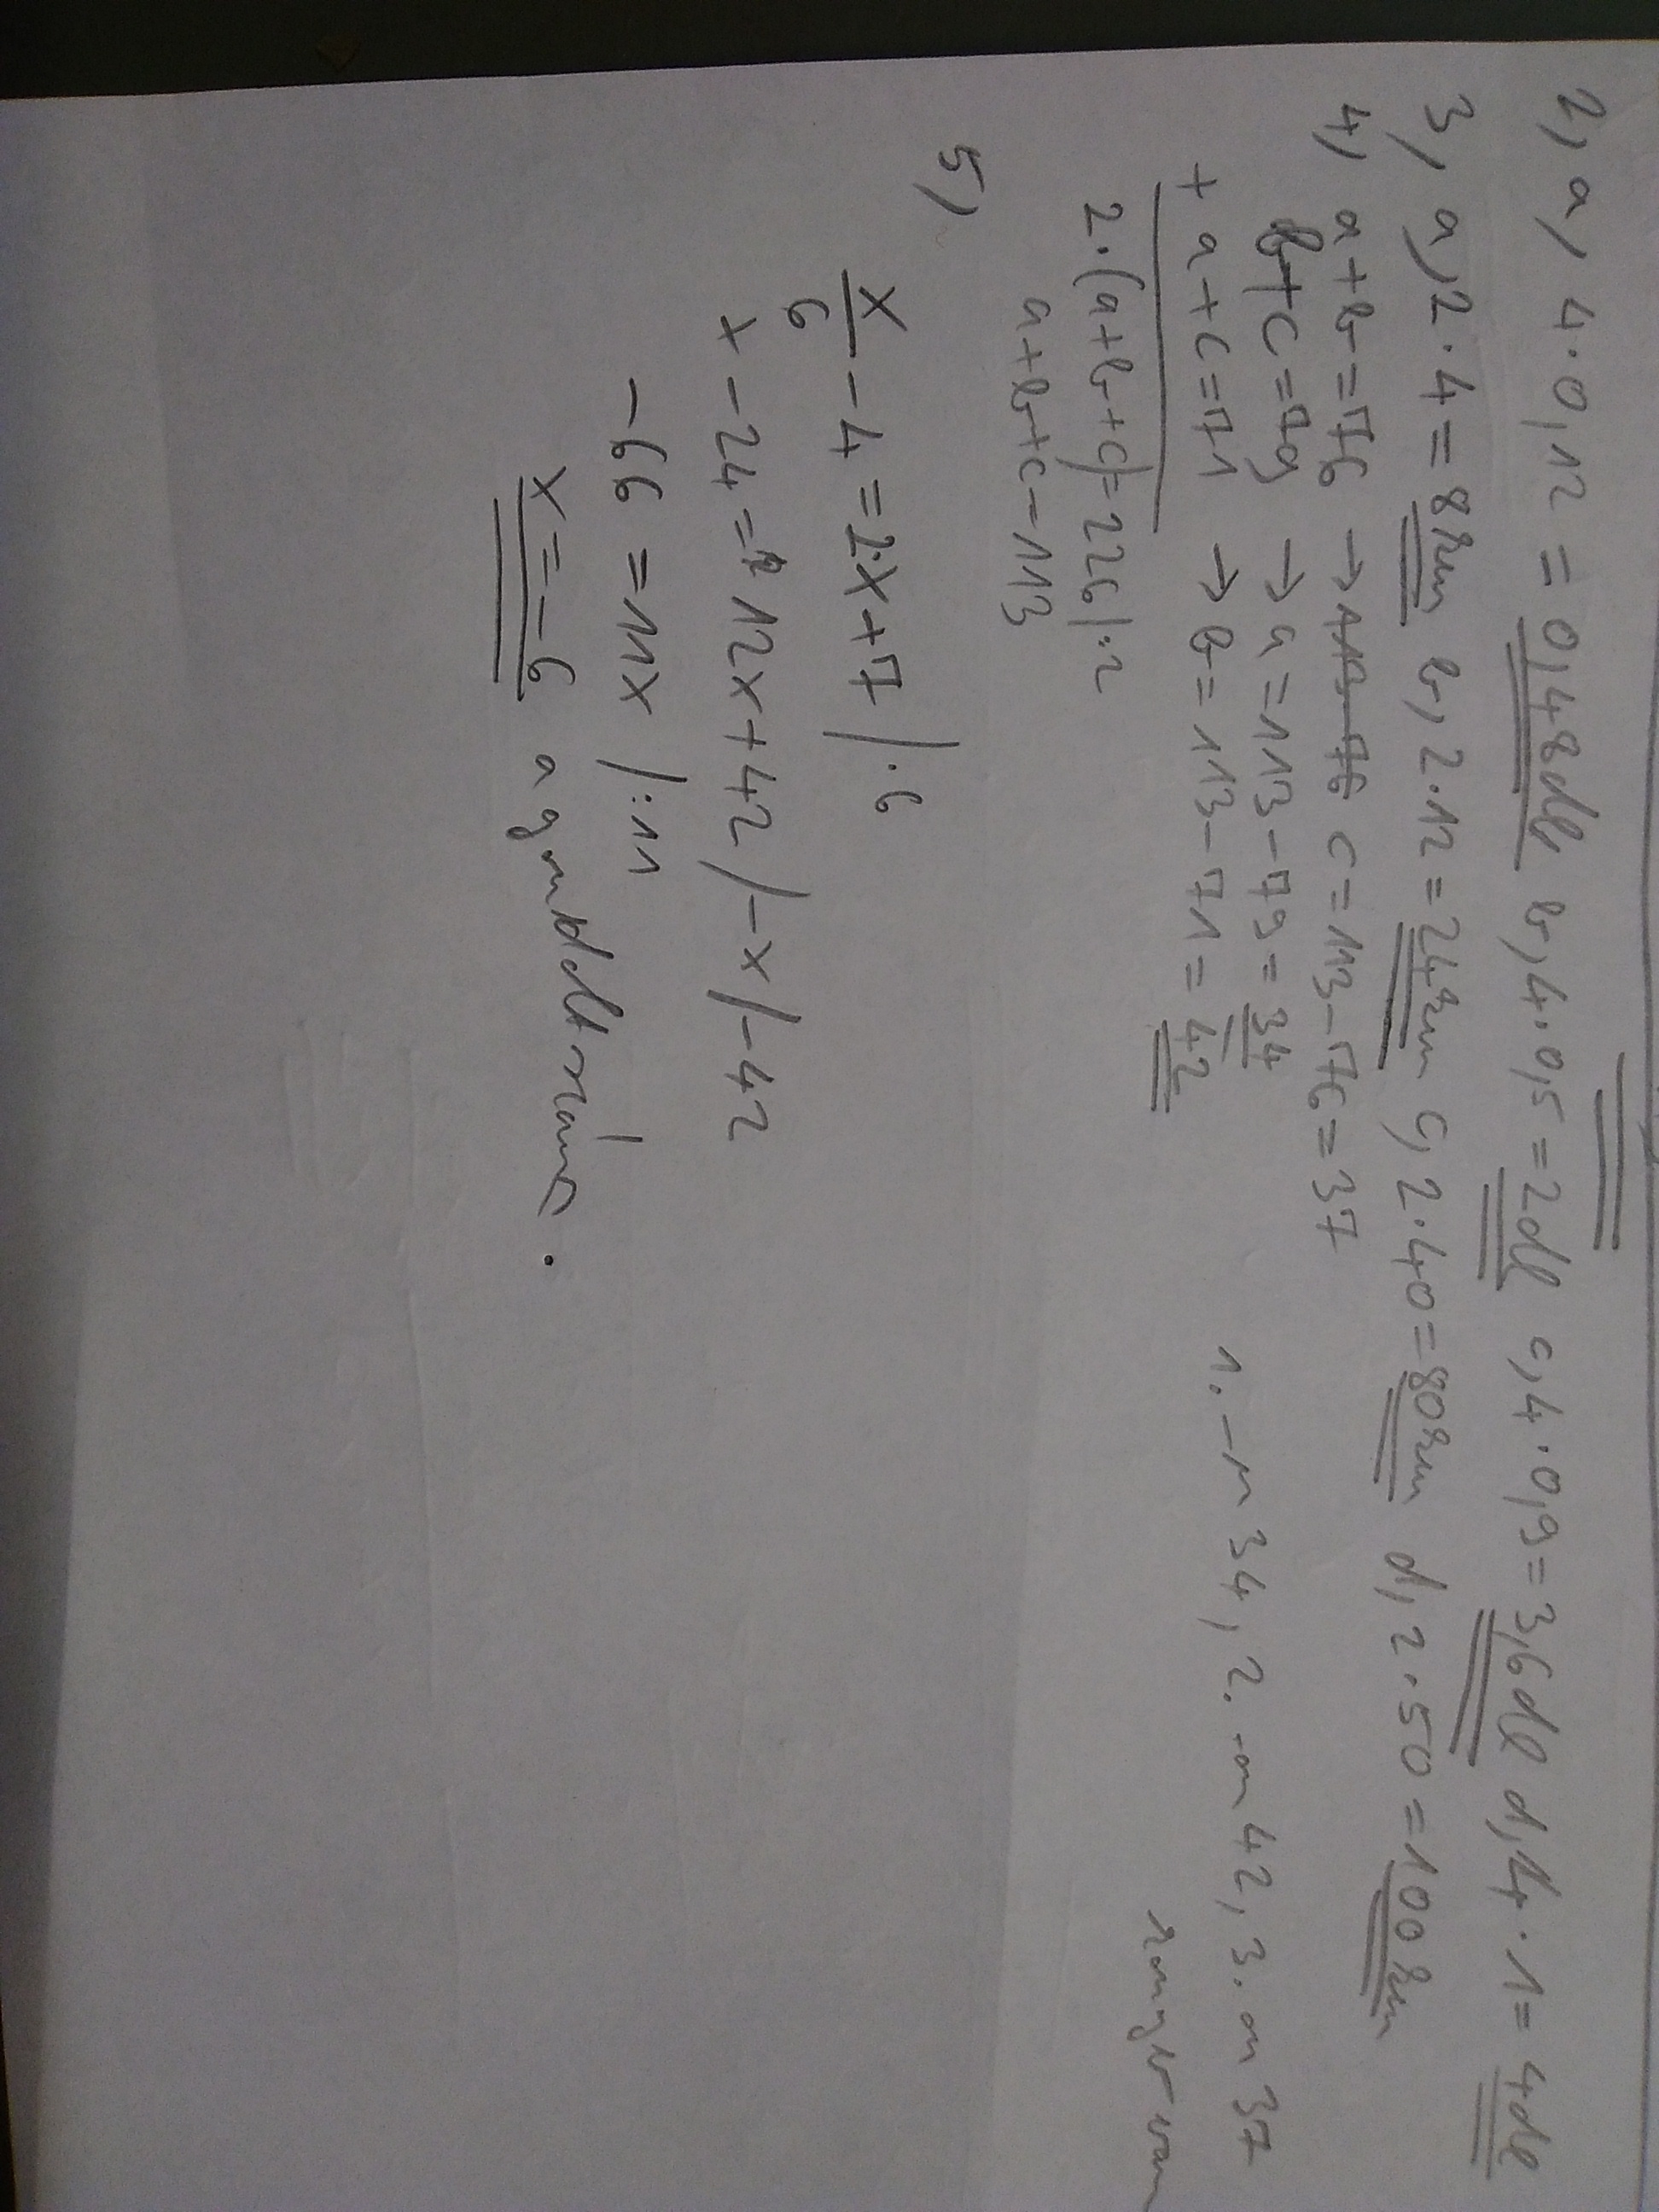 2, a, 4·0,12 = 0,48dl b, 4·0,5 = 2dl c, 4·0,9 = 3,6dl d, 4·1 = 4dl
3, a, 2·4 = 8km b, 2·12 = 24km c, 2·40 = 80km d, 2·50 = 100km
4, a+b=76 → 113-76 c = 113-76 = 37
b+c=79 → a = 113-79 = 34
+ a+c=71 → b = 113-71 = 42
1. -n 34, 2. -on 42, 3. on 37
2·(a+b+c)=226 /:2
a+b+c=113
5,
x/6 - 4 = 2·x+7 /·6
x - 24 = 12x+42 /-x /-42
-66 = 11x /:11
x = -6 a gondolt szám.